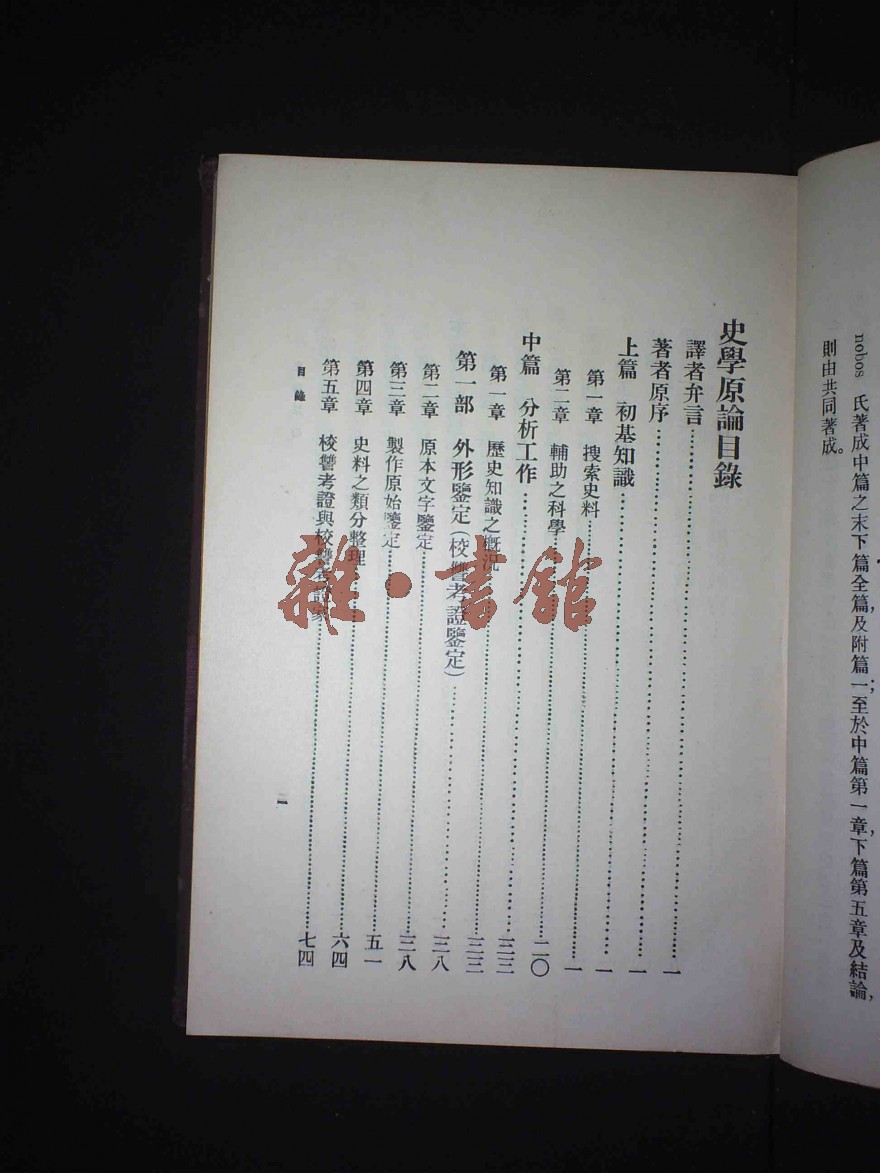 nobos 氏著成中篇之末下篇全篇,及附篇一;至於中篇第一章,下篇第五章及結論,
則由共同著成。
史學原論目錄
譯者弁言……一
著者原序……一
上篇 初基知識……一
第一章 搜索史料……一
第二章 輔助之科學……二〇
中篇 分析工作……三三
第一章 歷史知識之概況……三三
第一部 外形鑒定(校讐考證鑒定)……三八
第二章 原本文字鑒定……三八
第三章 製作原始鑒定……五一
第四章 史料之類分整理……六四
第五章 校讐考證與校讐考證家……七四
目錄
二
雜·書館